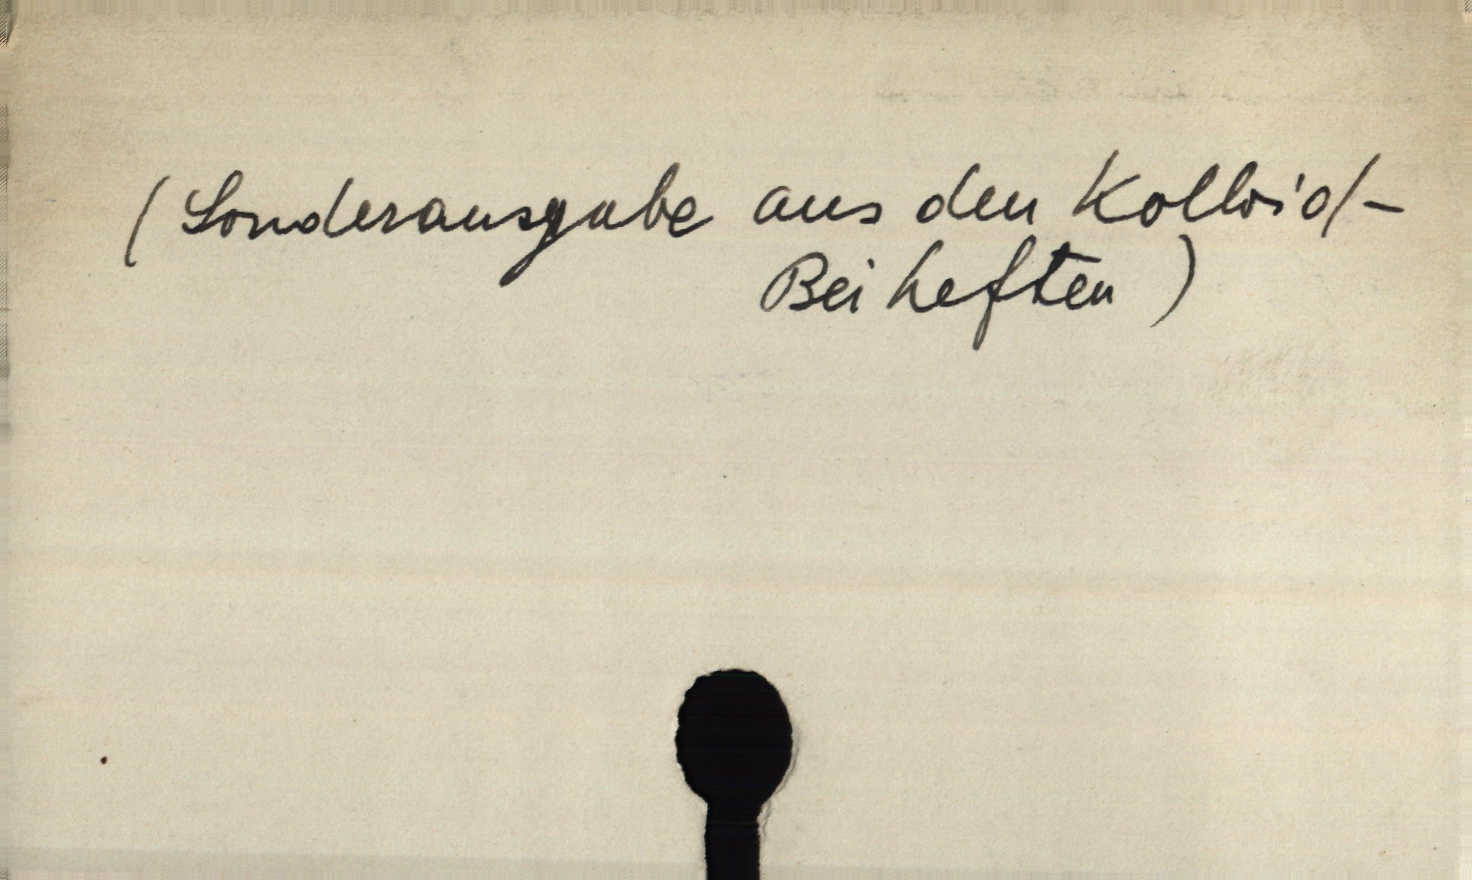 (Sonderausgabe aus den Kolloid-
Beiheften)